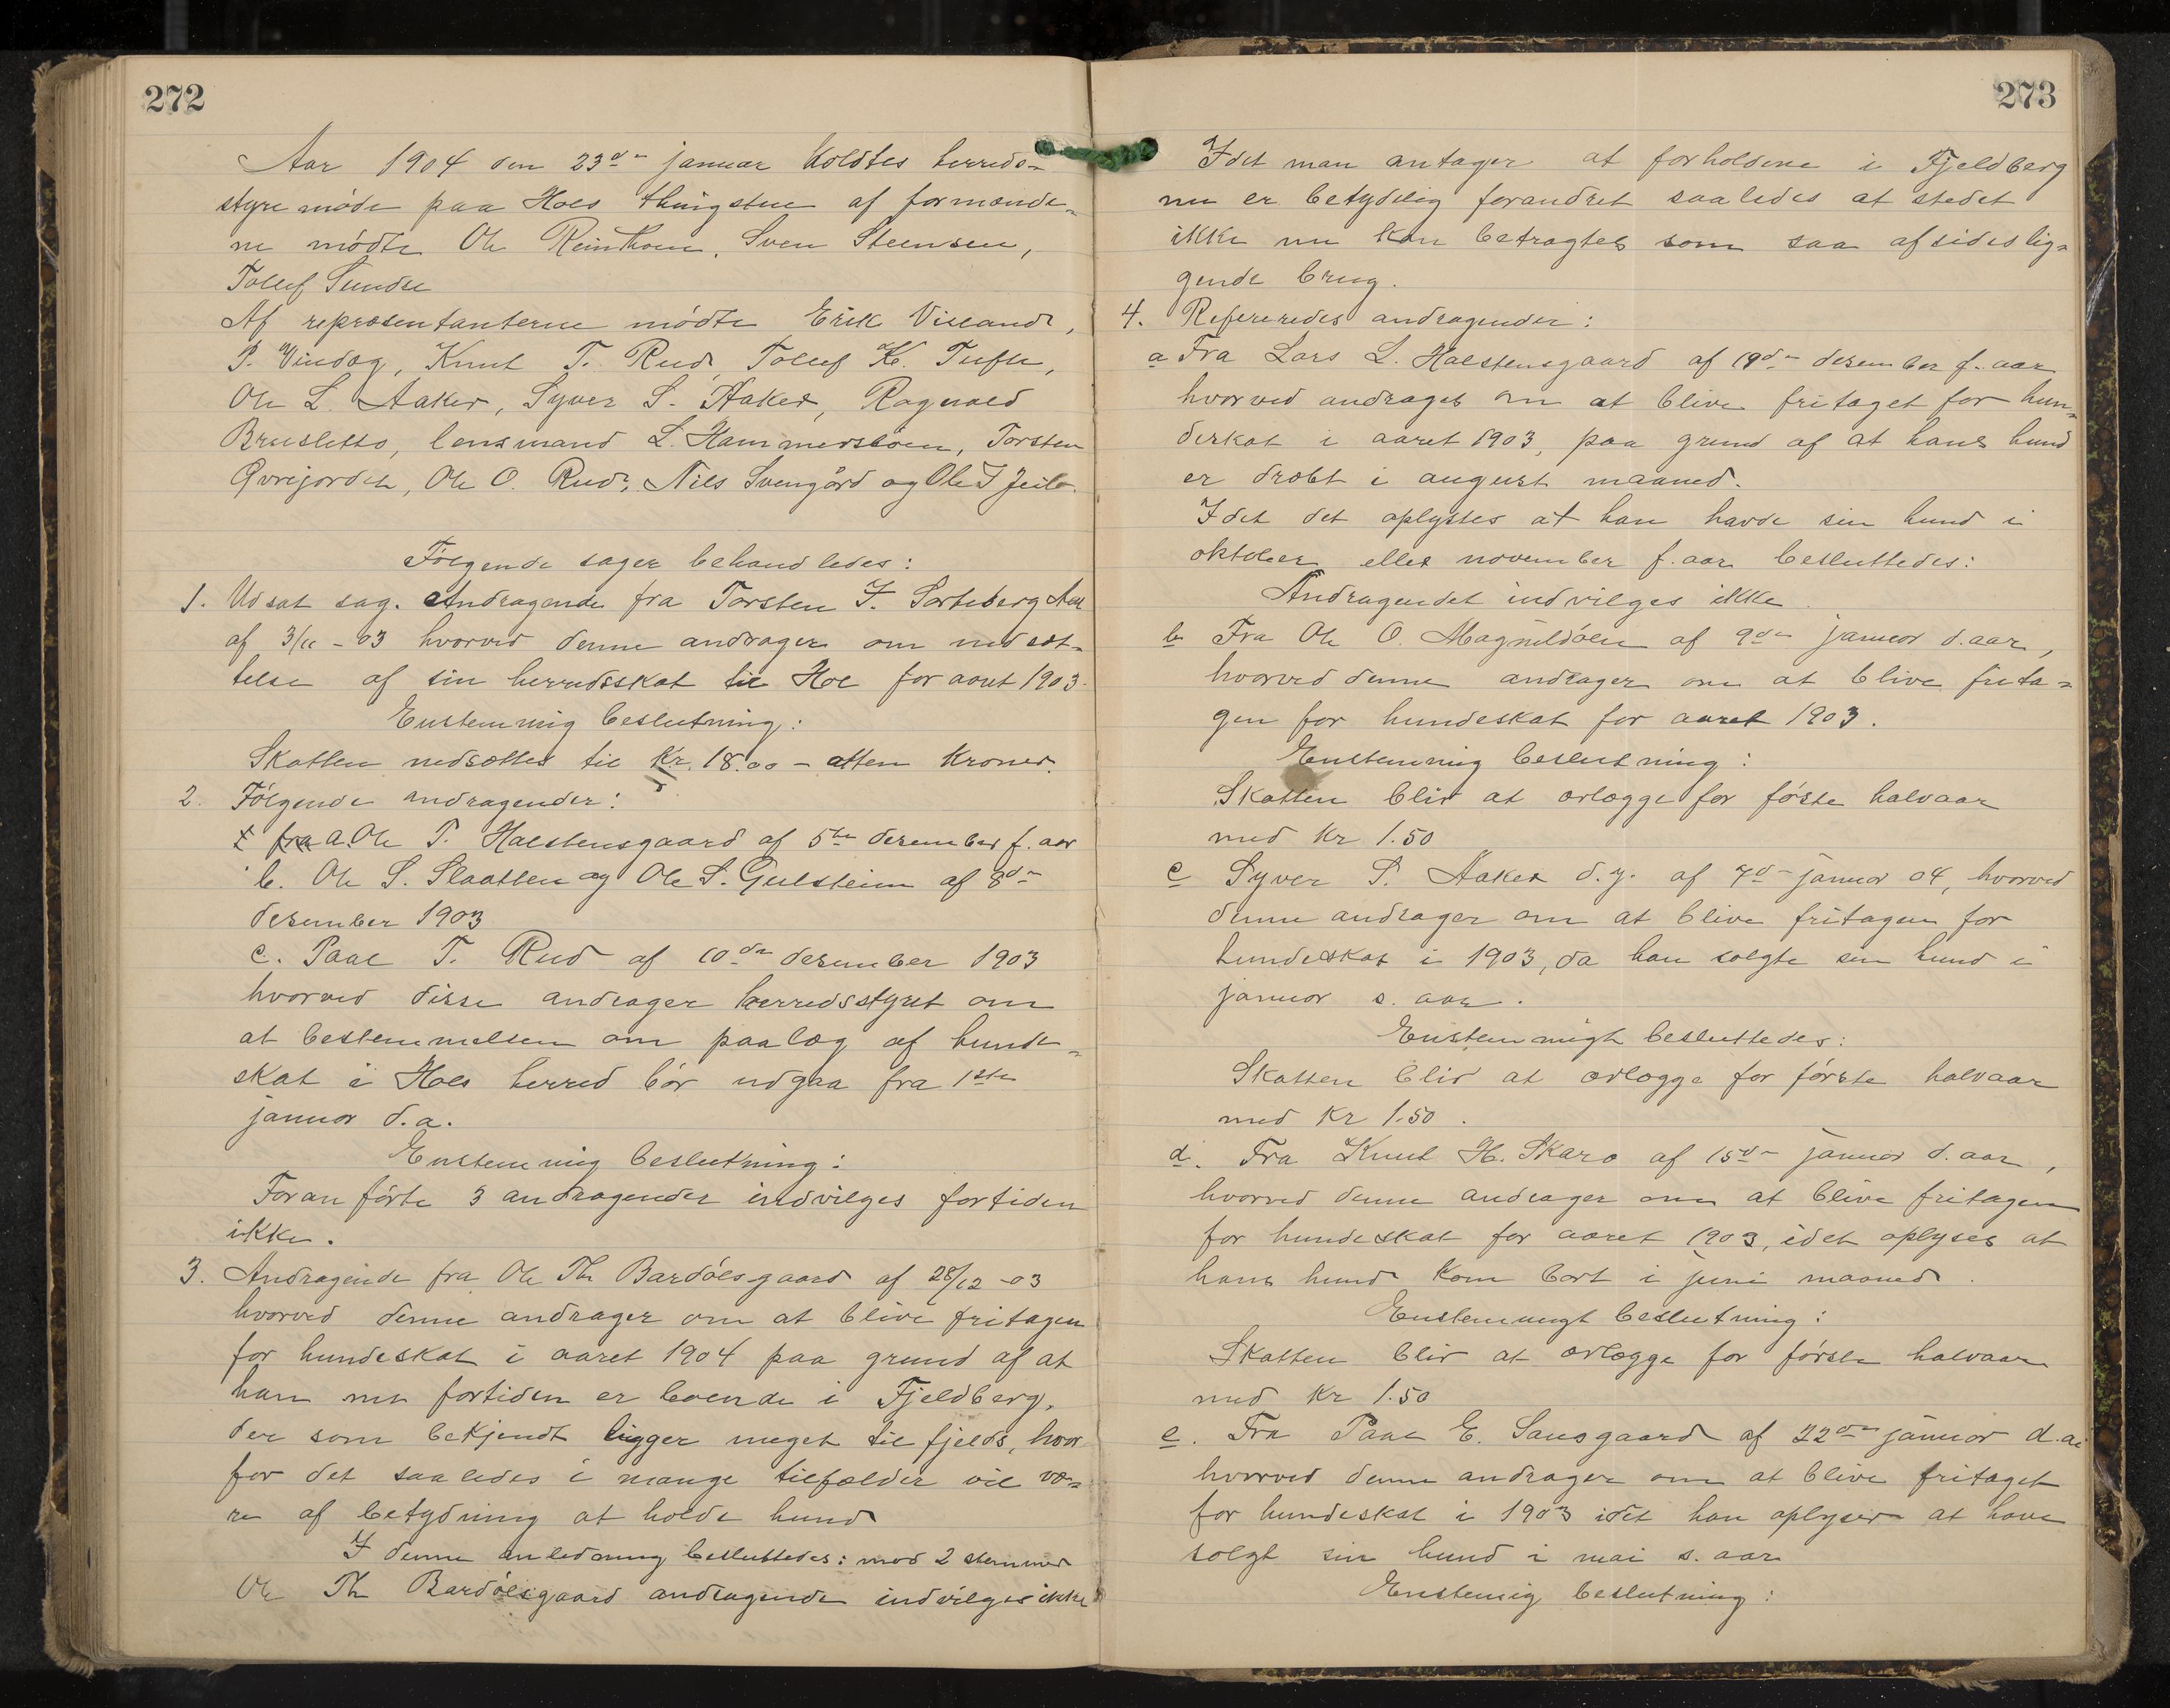 272
Aar 1904 den 23de januar holdtes herreds-
styremøde paa Hols thingstue af formænde-
ne mødte Ole Reinthon, Sven Steensen,
Tollef Sundre
Af repræsentanterne mødte Erik Villand,
P. Vindæg, Knut T. Rud, Tollef K. Tufte,
Ole L. Aaker, Syver S. Aaker, Ragnald
Brusletto, lensmand L. Hammersbøen, Torsten
Øvrejorde, Ole O. Rud, Nils Svengård og Ole T Jeilo.
Følgende sager behandledes:
1. Udsat sag. Andragende fra Torsten T. Sorteberg
af 3/11 - 03 hvorved denne andrager om nedsæt-
telse af sin herredsskat til Hol for aaret 1903.
Enstemmig beslutning:
Skatten nedsættes til kr. 18.00 - atten kroner.
2. Følgende andragender:
fra a. Ole T. Halstensgaard af 5te desember f. aar
b. Ole S. Slaatten og Ole S. Gulsteim af 8de
desember 1903
c. Paal T. Rud af 10de desember 1903
hvorved disse andrager herredsstyret om
at bestemmelsen om paalæg af hunde-
skat i Hols herred bør udgaa fra 1ste
januar d.a.
Enstemmig beslutning:
Foranførte 3 andragender indvilges fortiden
ikke.
3. Andragende fra Ole Th Bardølsgaard af 28/12 -03
hvorved denne andrager om at blive fritagen
for hundeskat i aaret 1904 paa grund af at
han nu fortiden er boende i Fjeldberg,
der som bekjendt ligger meget til fjelds, hvor
for det saaledes i mange tilfælder vil væ-
re af betydning at holde hund
I denne anledning besluttedes: mod 2 stemmer
Ole Th Bardølsgaard andragende indvilges ikke
273
Idet man antager at forholdene i Fjeldberg
nu er betydelig forandret saaledes at stedet
ikke nu kan betragtes som saa afsideslig-
gende brug.
4. Refereredes andragender:
a Fra Lars L. Halstensgaard af 19de desember f. aar
hvorved andrages om at blive fritaget for hun-
deskat i aaret 1903, paa grund af at hans hund
er dræbt i august maaned.
Idet det oplystes at han havde sin hund i
oktober eller november f. aar besluttedes:
Andragendet indvilges ikke.
b Fra Ole O. Magnildølen af 9de januar d. aar,
hvorved denne andrager om at blive frita-
gen for hundeskat for aaret 1903.
Enstemmig beslutning:
Skatten blir at erlægge for første halvaar
med kr 1.50
c Syver S. Aaker d.y. af 7de januar 04, hvorved
denne andrager om at blive fritagen for
hundeskat i 1903, da han solgte sin hund i
januar s. aar.
Enstemmigt besluttedes:
Skatten blir at erlægge for første halvaar
med kr 1.50.
d. Fra Knut H. Skaro af 15de januar d. aar,
hvorved denne andrager om at blive fritagen
for hundeskat for aaret 1903, idet oplyses at
hans hund kom bort i juni maaned.
Enstemmigt beslutning:
Skatten blir at erlægge for første halvaar
med kr 1.50
e. Fra Paal E. Sausgaard af 22de januar d.a.
hvorved denne andrager om at blive fritaget
for hundeskat i 1903 idet han oplyser at have
solgt sin hund i mai s. aar
Enstemig beslutning: